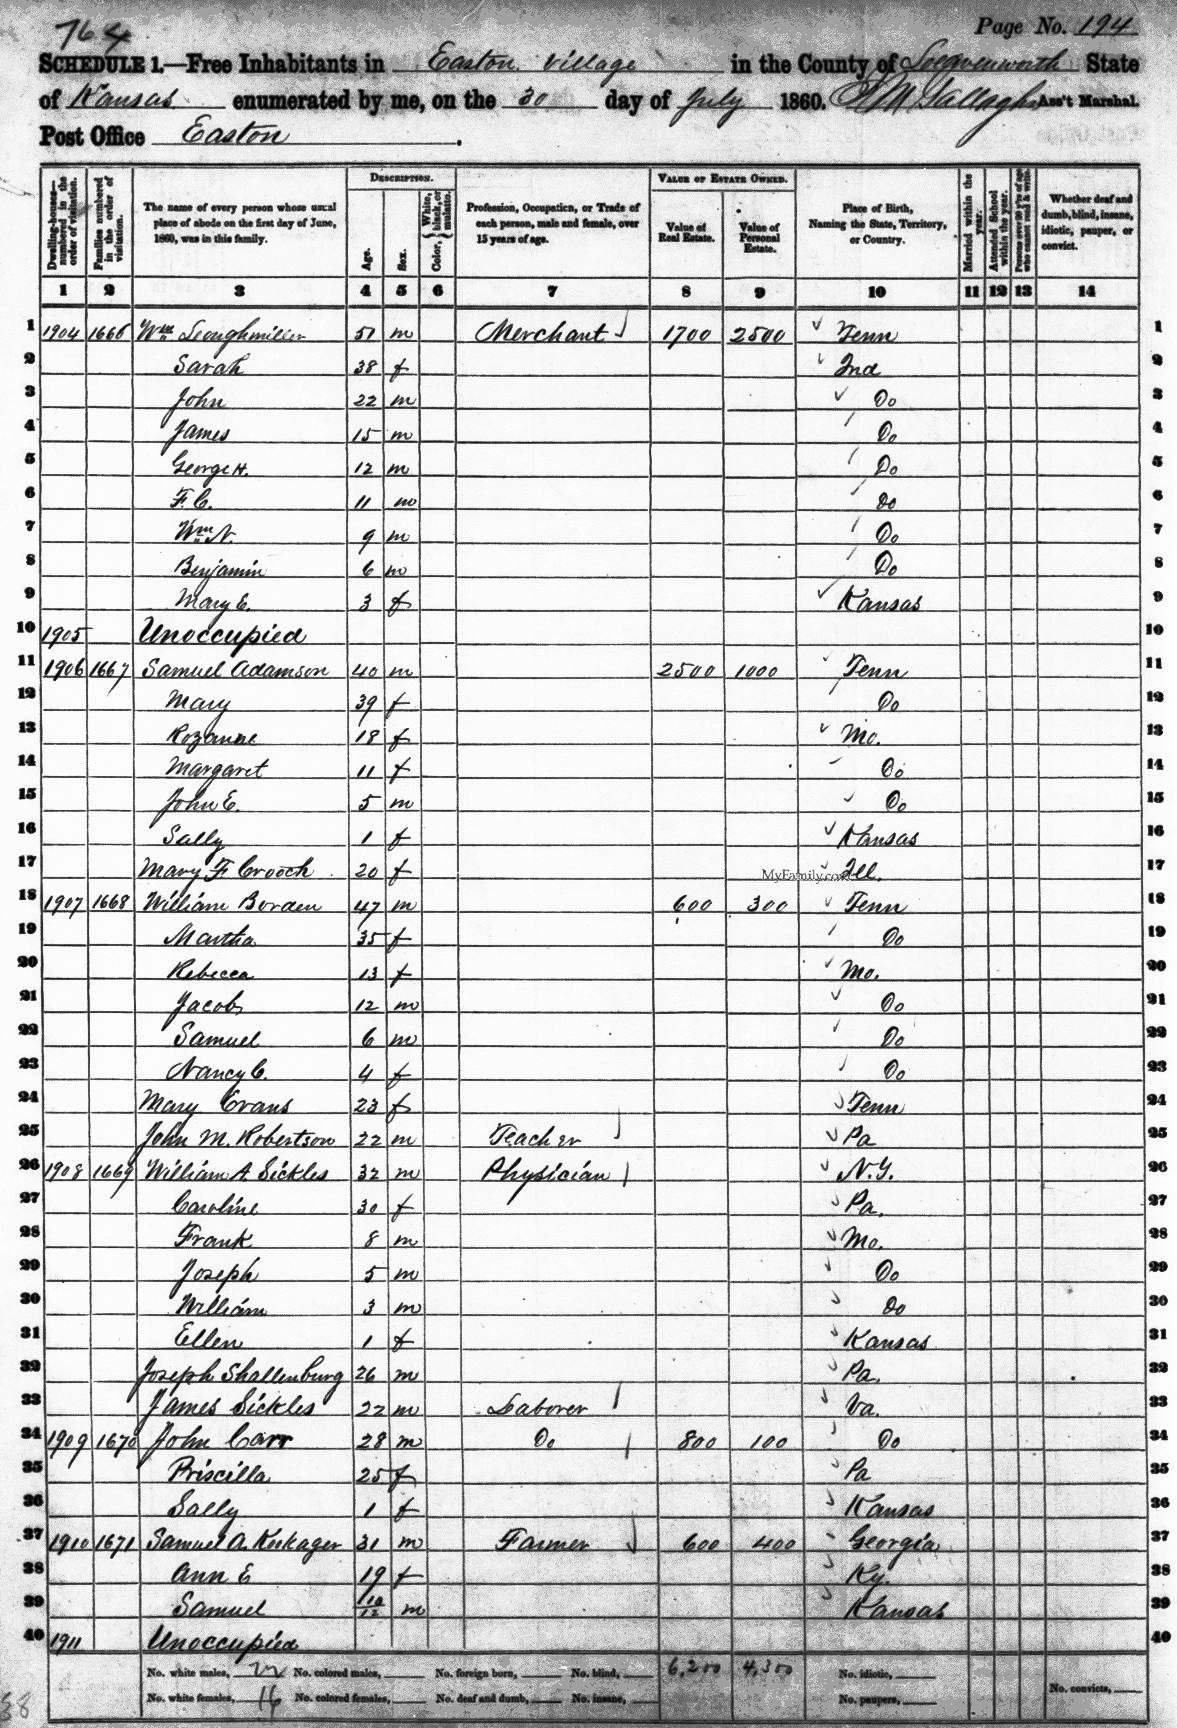 764
Page No. 194
SCHEDULE 1.—Free Inhabitants in Easton Village in the County of Leavenworth State
of Kansas enumerated by me, on the 30 day of July 1860. Ass't Marshal.
Post Office Easton.
DESCRIPTION. VALUE OF ESTATE OWNED.
Dwelling-houses—numbered in the order of visitation. Families numbered in the order of visitation. The name of every person whose usual place of abode on the first day of June, 1860, was in this family. Age. Sex. Color, White, black, or mulatto. Profession, Occupation, or Trade of each person, male and female, over 15 years of age. Value of Real Estate. Value of Personal Estate. Place of Birth, Naming the State, Territory, or Country. Married within the year. Attended School within the year. Persons over 20 y'rs of age who cannot read & write. Whether deaf and dumb, blind, insane, idiotic, pauper, or convict.
1 2 3 4 5 6 7 8 9 10 11 12 13 14
1 1904 1666 Wm 51 m Merchant 1700 2500 Tenn 1
2 Sarah 38 f Ind 2
3 John 22 m Do 3
4 James 15 m Do 4
5 George H. 12 m Do 5
6 F. C. 11 m Do 6
7 Wm N. 9 m Do 7
8 Benjamin 6 m Do 8
9 Mary E. 3 f Kansas 9
10 1905 Unoccupied 10
11 1906 1667 Samuel Adamson 40 m 2500 1000 Tenn 11
12 Mary 39 f Do 12
13 Rozanne 18 f Mo. 13
14 Margaret 11 f Do 14
15 John E. 5 m Do 15
16 Sally 1 f Kansas 16
17 Mary F. Crooch 20 f MyFamily.com Ill. 17
18 1907 1668 William Borden 47 m 600 300 Tenn 18
19 Martha 35 f Do 19
20 Rebecca 13 f Mo. 20
21 Jacob 12 m Do 21
22 Samuel 6 m Do 22
23 Nancy C. 4 f Do 23
24 Mary Evans 23 f Tenn 24
25 John M. Robertson 22 m Teacher Pa 25
26 1908 1669 William A. Sickles 32 m Physician N.Y. 26
27 Caroline 30 f Pa. 27
28 Frank 8 m Mo. 28
29 Joseph 5 m Do 29
30 William 3 m Do 30
31 Ellen 1 f Kansas 31
32 Joseph Shallenburg 26 m Pa. 32
33 James Sickles 22 m Laborer Va. 33
34 1909 1670 John Carr 28 m Do 800 100 Do 34
35 Priscilla 25 f Pa 35
36 Sally 1 f Kansas 36
37 1910 1671 Samuel A. Kukager 31 m Farmer 600 400 Georgia 37
38 Ann E 19 f Ky. 38
39 Samuel 10/12 m Kansas 39
40 1911 Unoccupied 40
No. white males, 22 No. colored males, No. foreign born, No. blind, 6,200 4,300 No. idiotic,
No. white females, 16 No. colored females, No. deaf and dumb, No. insane, No. paupers, No. convicts,
38